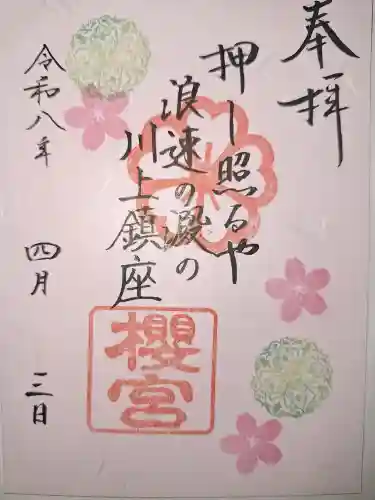 奉拝
押し照るや
浪速の澱の
川上鎮座
櫻宮
令和八年 四月 三日